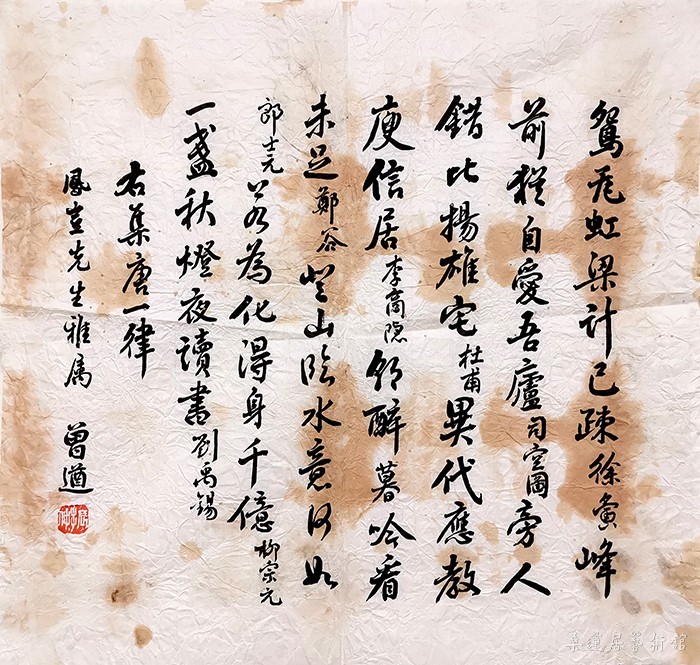 鴛瓦虹梁計已疎徐夤峰
前猶自愛吾廬司空圖旁人
錯比揚雄宅杜甫異代應教
庾信居李商隱朝醉暮吟看
未足鄭谷登山臨水意何如
郎士元若為化得身千億柳宗元
一盞秋燈夜讀書劉禹錫
右集唐一律
鳳先生雅屬 曾遒
蓮居藝術館